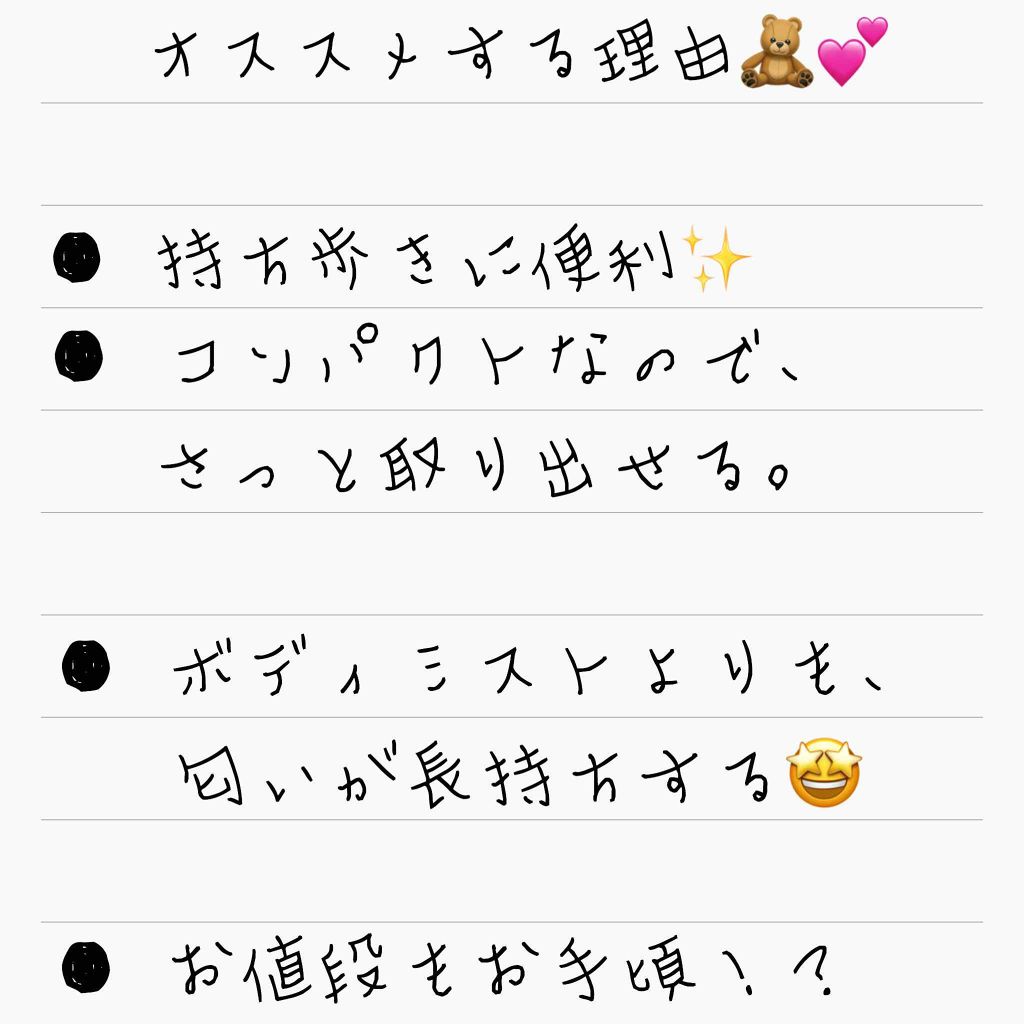 オススメする理由🧸💕
● 持ち歩きに便利✨
● コンパクトなので、
さっと取り出せる。
● ボディミストよりも、
匂いが長持ちする🤩
● お値段もお手頃！？